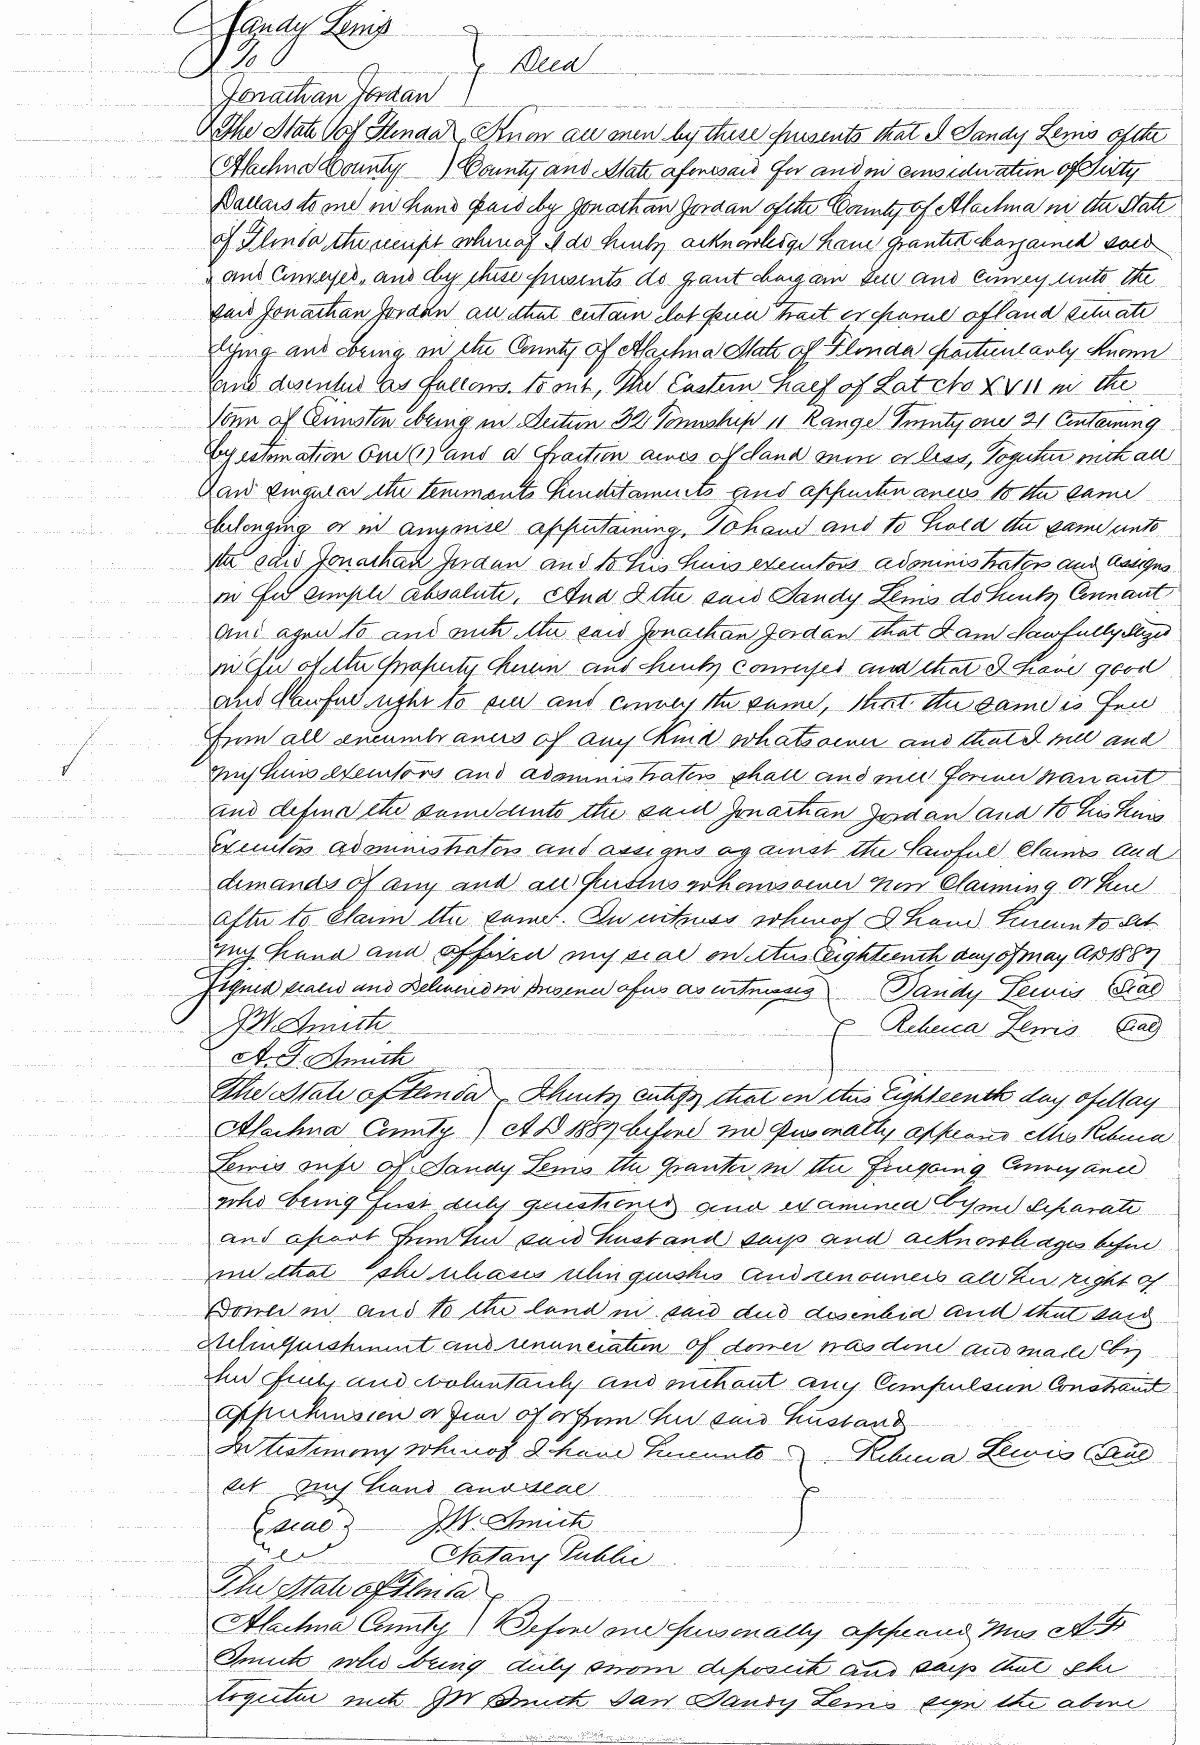 Sandy Lewis
To
Deed
Jonathan Jordan
The State of Florida } Know all men by these presents that I Sandy Lewis of the
Alachua County ) County and State aforesaid for and in consideration of Sixty
Dollars to me in hand paid by Jonathan Jordan of the County of Alachua in the State
of Florida the receipt whereof I do hereby acknowledge have granted bargained sold
and Conveyed, and by these presents do grant bargain sell and convey unto the
said Jonathan Jordan all that certain lot piece tract or parcel of land situate
lying and being in the County of Alachua State of Florida particularly known
and described as follows. to wit, The Eastern half of Lot No XVII in the
town of being in Section 32 Township 11 Range Twenty one 21 Containing
by estimation One (1) and a fraction acres of land more or less, Together with all
and singular the tenements hereditaments and appurtenances to the same
belonging or in anywise appertaining, To have and to hold the same unto
the said Jonathan Jordan and to his heirs executors administrators and assigns
in fee simple absolute. And I the said Sandy Lewis do hereby Covenant
and agree to and with the said Jonathan Jordan that I am lawfully siezed
in fee of the property herein and hereby conveyed and that I have good
and lawful right to sell and convey the same, that the same is free
from all encumbrances of any Kind whatsoever and that I will and
my heirs executors and administrators shall and will forever warrant
and defend the same unto the said Jonathan Jordan and to his heirs
executors administrators and assigns against the lawful claims and
demands of any and all persons whomsoever now Claiming or here
after to Claim the same. In witness whereof I have hereunto set
my hand and affixed my seal on this Eighteenth day of May AD 1887
Signed sealed and Delivered in presence of us as witnesses } Sandy Lewis (Seal)
J.W. Smith } Rebecca Lewis (Seal)
A. F. Smith
The State of Florida } I hereby certify that on this Eighteenth day of May
Alachua County ) AD 1887 before me personally appeared Mrs Rebecca
Lewis wife of Sandy Lewis the grantor in the foregoing Conveyance
who being first duly questioned and examined by me separate
and apart from her said husband says and acknowledges before
me that she releases relinquishes and renounces all her right of
Dower in and to the land in said deed described and that said
relinquishment and renunciation of dower was done and made by
her freely and voluntarily and without any Compulsion Constraint
apprehension or fear of or from her said husband
In testimony whereof I have hereunto } Rebecca Lewis (Seal)
set my hand and seal
(seal) J.W. Smith
Notary Public
The State of Florida }
Alachua County ) Before me personally appeared Mrs A F
Smith who being duly sworn deposeth and says that she
together with JW Smith saw Sandy Lewis sign the above